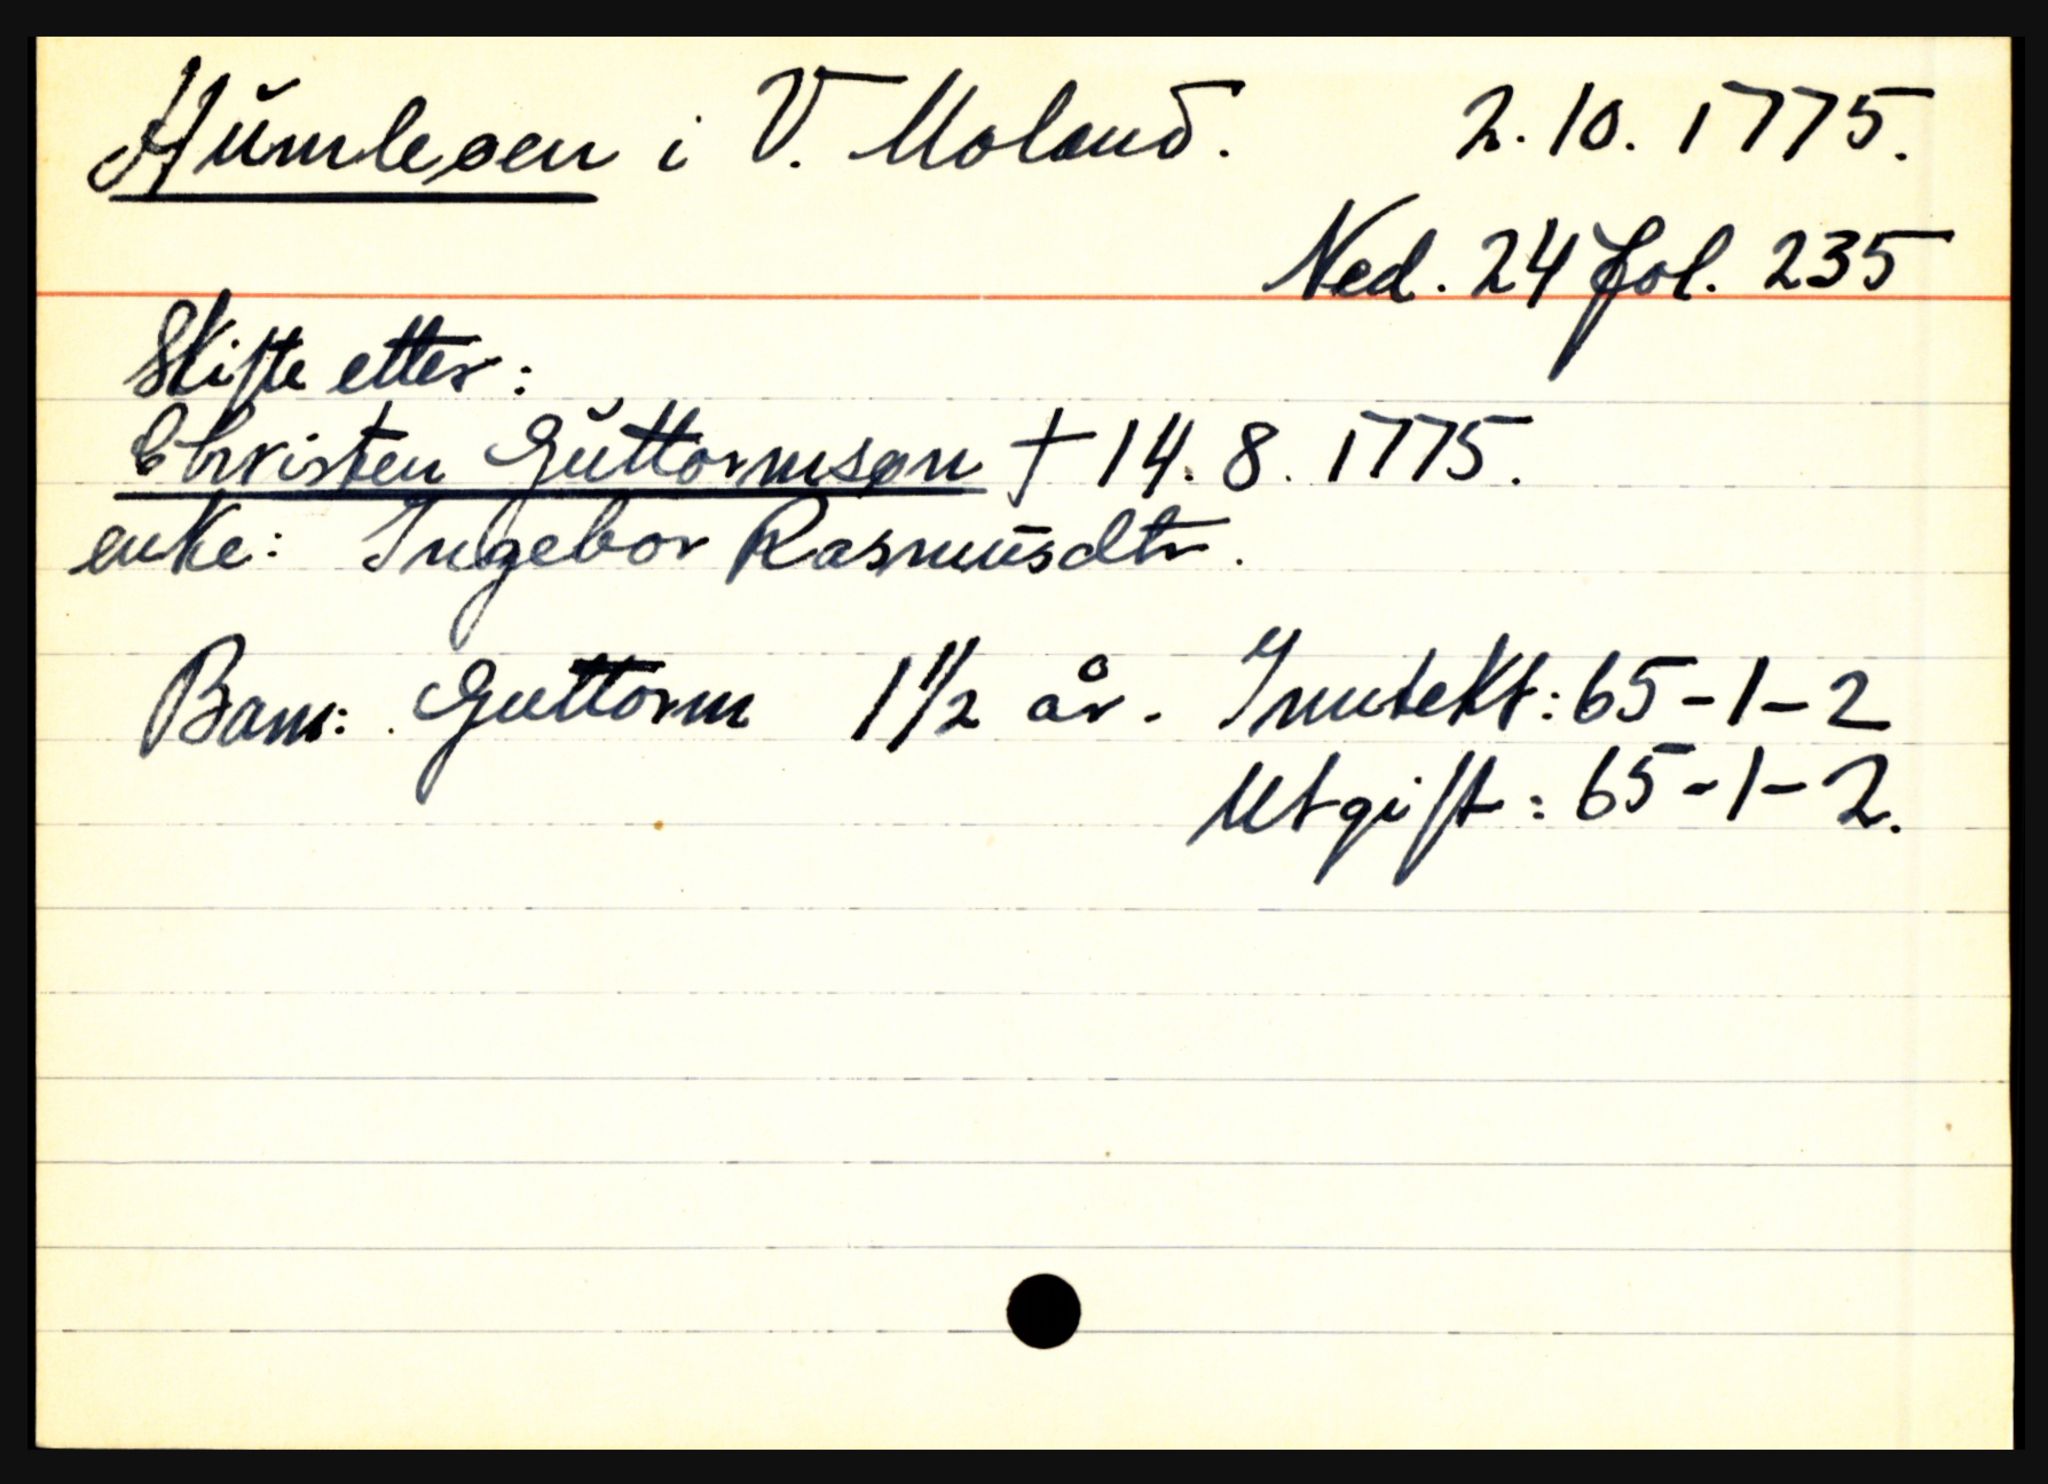 Humleøen i V. Moland. 2.10.1775.
Ned. 24 fol. 235
Skifte etter:
Christen Guttormsøn † 14.8.1775.
enke: Ingebor Rasmusdtr.
Barn: Guttorm 1 1/2 år. Inntekt: 65-1-2
Utgift: 65-1-2.